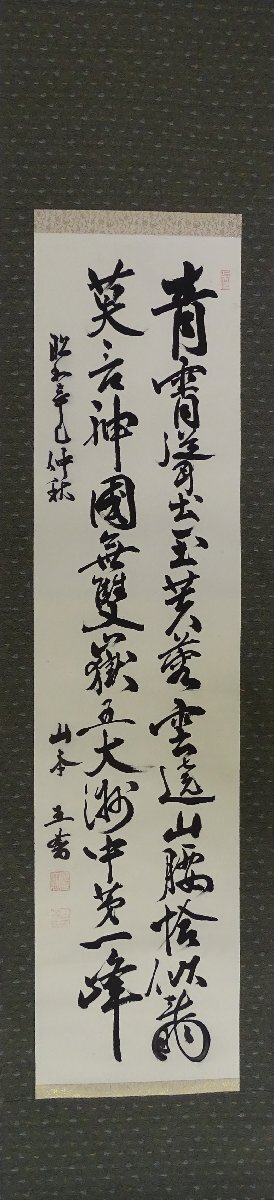 青霄聳出玉芙蓉雲遶山腰恰似龍
莫言神國無雙嶽五大洲中第一峰
昭和辛巳仲秋
山本玉